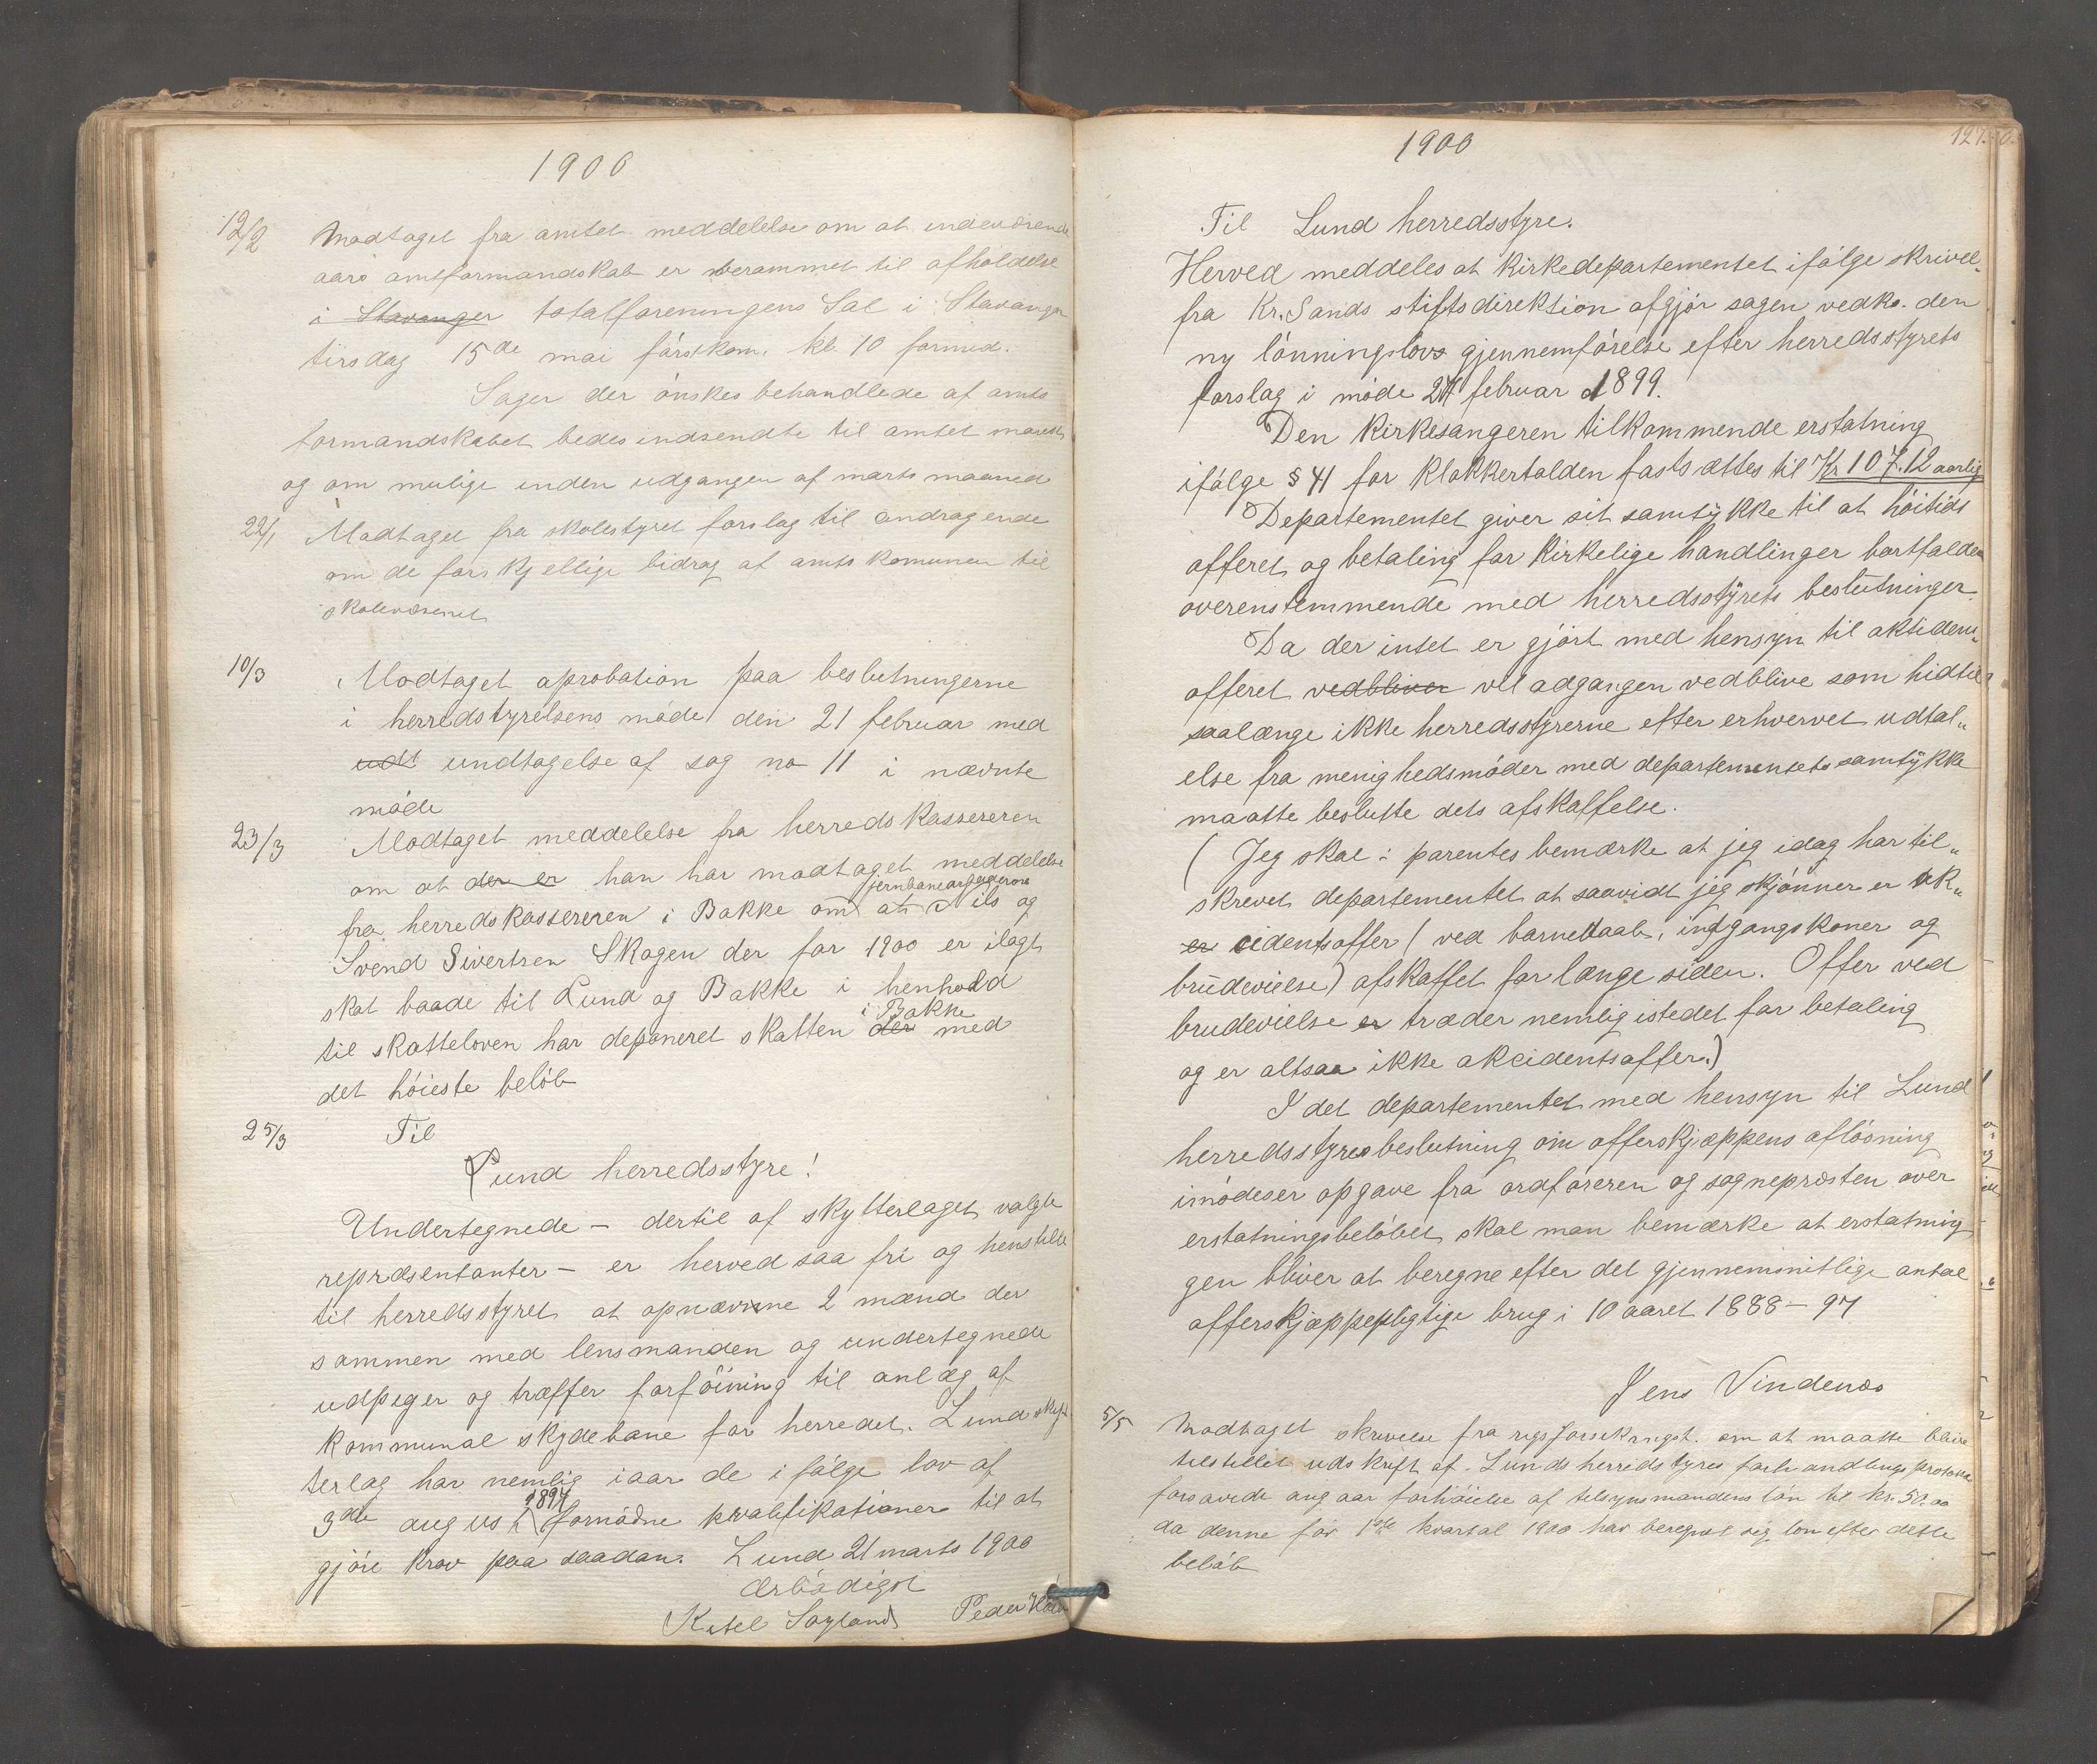 1900
12/2 Modtaget fra amtet meddelelse om at indeværende
aars amtformandskab er berammet til afholdelse
i Stavanger totalforeningens Sal i Stavanger
tirsdag 15de mai førstkom. kl. 10 formid.
Sager der ønskes behandlede af amts
formandskabet bedes indsendte til amtet
og om mulige inden udgangen af marts maaned
22/1 Modtaget fra skolestyret forslag til andragende
om de forskjellige bidrag af amtskomunen til
skolevæsenet
10/3 Modtaget aprobation paa beslutningerne
i herredstyrelsens møde den 21 februar med
udt undtagelse af sag no 11 i nævnte
møde
23/3 Modtaget meddelelse fra herredskassereren
om at der er han har modtaget meddelelse
jernbanearbeiderne
fra herredskassereren i Bakke om at Nils og
Svend Sivertsen Skogen der for 1900 er ilagt
skat baade til Lund og Bakke i henhold
i Bakke
til skatteloven har deponeret skatten der med
det høieste beløb
25/3 Til
Lund herredsstyre!
Undertegnede – dertil af skytterlaget valgte
repræsentanter – er herved saa fri og henstille
til herredsstyret at opnævne 2 mænd der
sammen med lensmanden og undertegnede
udpeger og træffer forføining til anlæg af
kommunal skydebane for herredet. Lund skyt
terlag har nemlig iaar de ifølge lov af
1897
3de august fornødne kvalifikationer til at
gjøre krav paa saadan. Lund 21 marts 1900
Ærbødigst
Ketel Sayland Peder
1900
127.
Til Lund herredsstyre.
Herved meddeles at kirkedepartementet ifølge skrivel„
fra Kr.Sands stiftsdirektion afgjør sagen vedk. den
ny lønningslovs gjennemførelse efter herredsstyrets
forslag i møde 24 februar 1899.
Den kirkesangeren tilkommende erstatning
ifølge § 41 for klokkertolden fastsættes til Kr 107.12 aarlig
Departementet giver sit samtykke til at høitids
offeret og betaling for kirkelige handlinger bortfalder
overenstemmende med herredsstyrets beslutninger.
Da der intet er gjort med hensyn til aktidens„
offeret vedbliver vil adgangen vedblive som hidtil
saalænge ikke herredsstyrerne efter erhvervet udtal„
else fra menighedsmøder med departementets samtykke
maatte beslutte dets afskaffelse.
( Jeg skal i parentes bemærke at jeg idag har til„
skrevet departementet at saavidt jeg skjønner er ak„
er cidentsoffer ( ved barnedaab, indgangskoner og
brudevielse) afskaffet for længe siden. Offer ved
brudevielse er træder nemlig istedet for betaling
og er altsaa ikke akcidentsoffer.)
I det departementet med hensyn til Lund
herredsstyres beslutning om offerskjæppens afløsning
imødeser opgave fra ordføreren og sognepræsten over
erstatningsbeløbet skal man bemærke at erstatnin
gen bliver at beregne efter det gjennemsnitlige antal
offerskjæppepligtige brug i 10 aaret 1888–97
Jens Vindenæs
5/5 Modtaget skrivelse fra rigsforsikringst. om at maatte blive
tilstillet udskrift af Lunds herredstyres forhandlings protokol
forsavidt angaar forhøielse af tilsynsmandens løn til kr. 50.00
da denne for 1ste kvartal 1900 har beregnet sig løn efter dette
beløb